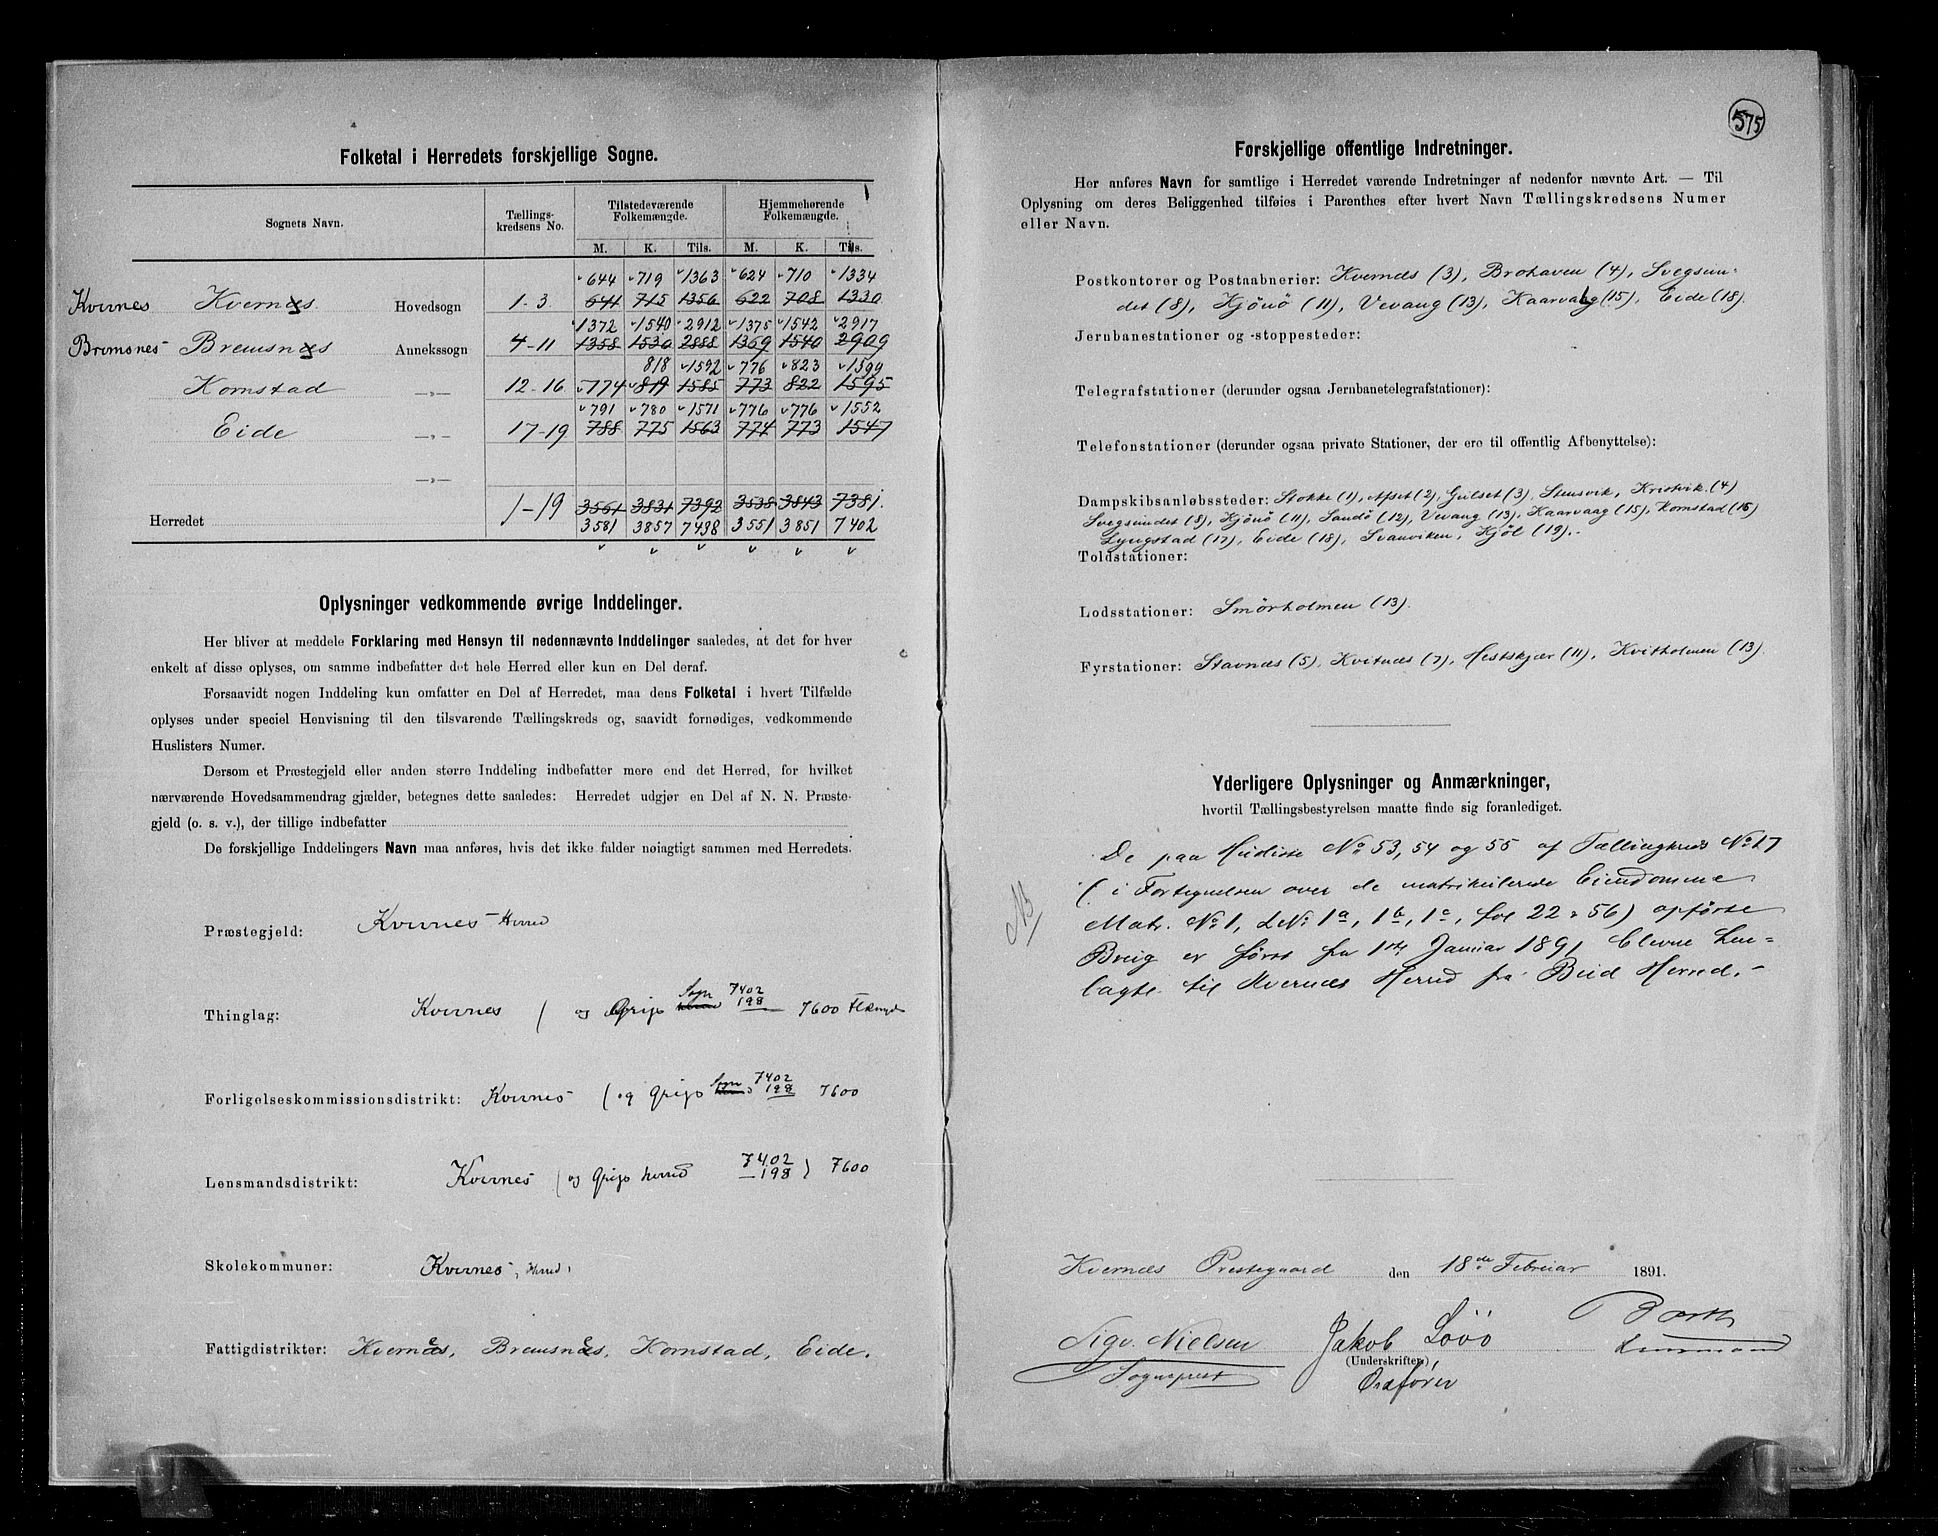 Folketal i Herredets forskjellige Sogne.
Sognets Navn.
Tællings-
kredsens No.
Tilstedeværende
Folkemængde.
Hjemmehørende
Folkemængde.
M. K. Tils. M. K. Tils.
644 719 1363 624 710 1334
Kvernes Kvernæs Hovedsogn 1-3 641 715 1356 622 708 1330
1372 1540 2912 1375 1542 2917
Bremsnes Bremsnæs Annekssogn 4-11 1358 1530 2888 1369 1540 2909
818 1592 776 823 1599
Kornstad —„— 12-16 774 819 1585 773 822 1595
791 780 1571 776 776 1552
Eide —„— 17-19 788 775 1563 774 773 1547
—„—
Herredet 1-19 3561 3831 7392 3538 3843 7381
3581 3857 7438 3551 3851 7402
Oplysninger vedkommende øvrige Inddelinger.
Her bliver at meddele Forklaring med Hensyn til nedennævnte Inddelinger saaledes, at det for hver
enkelt af disse oplyses, om samme indbefatter det hele Herred eller kun en Del deraf.
Forsaavidt nogen Inddeling kun omfatter en Del af Herredet, maa dens Folketal i hvert Tilfælde
oplyses under speciel Henvisning til den tilsvarende Tællingskreds og, saavidt fornødiges, vedkommende
Huslisters Numer.
Dersom et Præstegjeld eller anden større Inddeling indbefatter mere end det Herred, for hvilket
nærværende Hovedsammendrag gjælder, betegnes dette saaledes: Herredet udgjør en Del af N. N. Præste-
gjeld (o. s. v.), der tillige indbefatter
De forskjellige Inddelingers Navn maa anføres, hvis det ikke falder nøiagtigt sammen med Herredets.
Præstegjeld: Kvernes Herred
Thinglag: Kvernes ( og Grip Sogn 7402 198 7600
Forligelseskommissionsdistrikt: Kvernes ( og Grip Sogn 7402 198 7600
Lensmandsdistrikt: Kvernes ( og Grip herred 7402 198 ) 7600
Skolekommuner: Kvernes Herred
Fattigdistrikter: Kvernæs, Bremsnæs, Kornstad, Eide.
575
Forskjellige offentlige Indretninger.
Her anføres Navn for samtlige i Herredet værende Indretninger af nedenfor nævnte Art. — Til
Oplysning om deres Beliggenhed tilføies i Parenthes efter hvert Navn Tællingskredsens Numer
eller Navn.
Postkontorer og Postaabnerier: Kvernæs (3), Brohaven (4), Svegsun-
det (8), Kjönö (11), Vevang (13), Kaarvaag (15), Eide (18).
Jernbanestationer og -stoppesteder:
Telegrafstationer (derunder ogsaa Jernbanetelegrafstationer):
Telefonstationer (derunder ogsaa private Stationer, der ere til offentlig Afbenyttelse):
Dampskibsanløbssteder: Stokke (1), Apset (2), Gulset (3), Stensvik, Kristvik (4)
Svegsundet (8), Kjönö (11), Sandö (12), Vevang (13), Kaarvaag (15), Kornstad (16)
Lyngstad (17), Eide (18), Svanviken, Kjöl (19).
Toldstationer:
Lodsstationer: Smörholmen (13).
Fyrstationer: Stavnæs (5), Kvitnæs (7), Hestskjær (11), Kvitholmen (13).
Yderligere Oplysninger og Anmærkninger,
hvortil Tællingsbestyrelsen maatte finde sig foranlediget.
NB
De paa Husliste No 53, 54 og 55 af Tællingkreds No 17
( i Fortegnelsen over de matrikulerede Eiendomme
Matr. No 1, LNo 1a, 1b, 1c, fol 22 56) opførte
Brug er først fra 1ste Januar 1891 blevne hen-
lagte til Kvernæs Herred fra Bud Herred.
Kvernæs Prestegaard den 18de Februar 1891.
Sigv. Nielsen Jakob Lövö
(Underskrifter)
Sogneprest Ordfører Lensmand